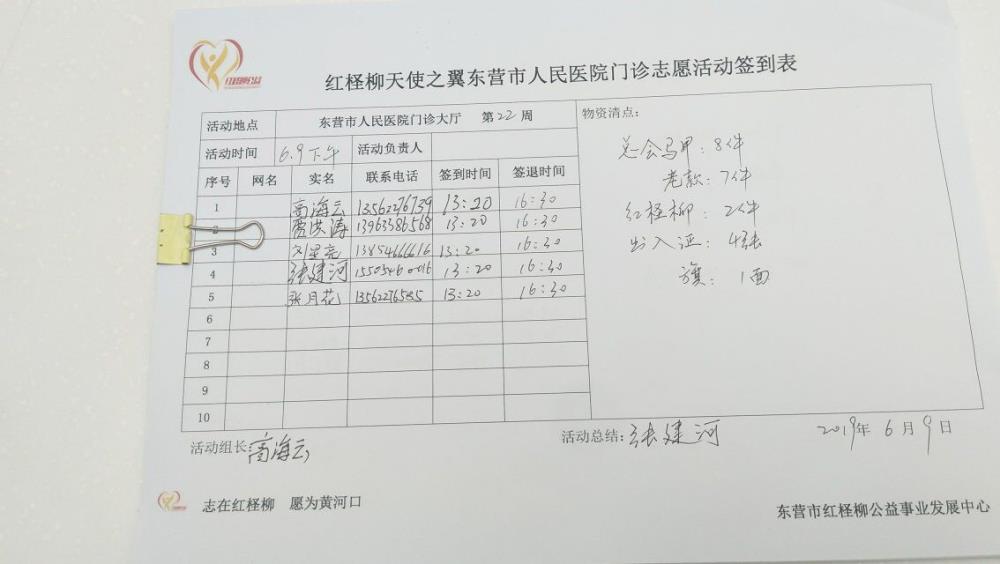 红柽柳天使之翼东营市人民医院门诊志愿活动签到表
活动地点 东营市人民医院门诊大厅 第22周
活动时间 6.9下午 活动负责人
序号 网名 实名 联系电话 签到时间 签退时间
1 高海云 13562276739 13:20 16:30
2 贾洪涛 13963386568 13:20 16:30
3 刘星亮 13854666616 13:20 16:30
4 张建河 13:20 16:30
5 张月花 13:20 16:30
6
7
8
9
10
物资清点：
总会马甲：8件
老款：7件
红柽柳：2件
出入证：4张
旗：1面
活动组长：高海云
活动总结：张建河
2019年6月9日
志在红柽柳 愿为黄河口
东营市红柽柳公益事业发展中心